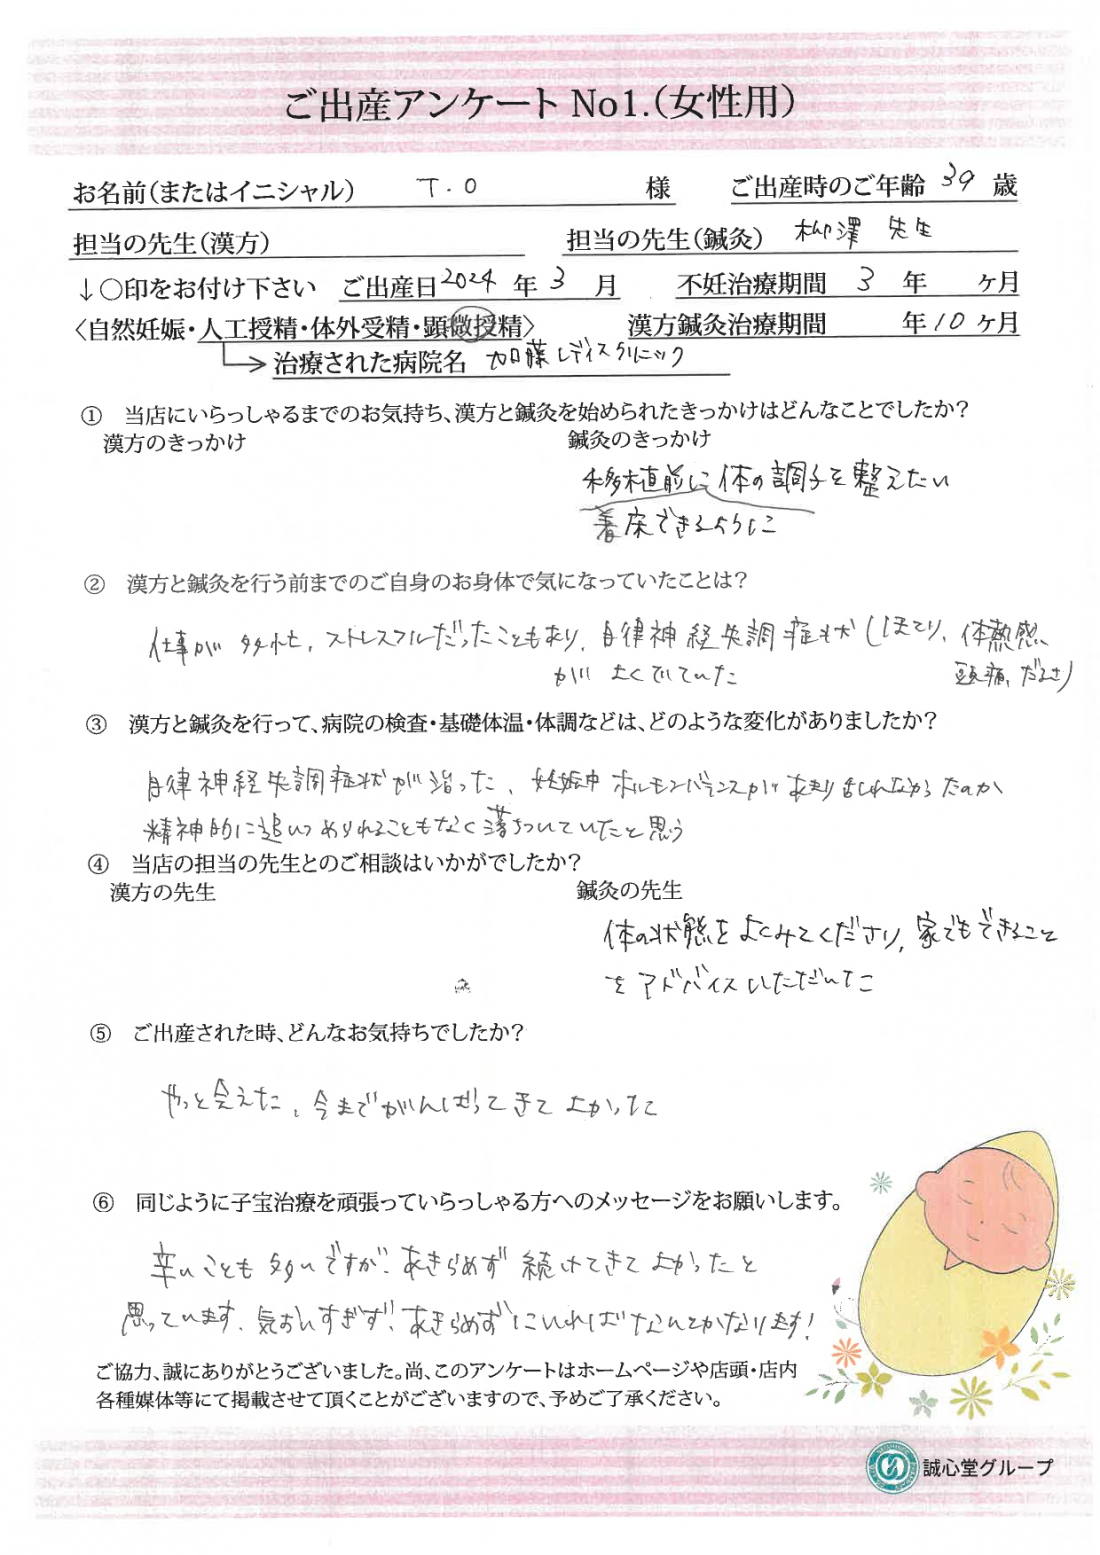 ご出産アンケート No1.(女性用)
お名前(またはイニシャル) T.O 様 ご出産時のご年齢 39 歳
担当の先生(漢方) 担当の先生(鍼灸) 柳澤 先生
↓○印をお付け下さい ご出産日 2024 年 3 月 不妊治療期間 3 年 ヶ月
〈自然妊娠・人工授精・体外受精・顕微授精〉 漢方鍼灸治療期間 年 10 ヶ月
治療された病院名 加藤レディスクリニック
① 当店にいらっしゃるまでのお気持ち、漢方と鍼灸を始められたきっかけはどんなことでしたか?
漢方のきっかけ 鍼灸のきっかけ
移植前に体の調子を整えたい
着床できるように
② 漢方と鍼灸を行う前までのご自身のお身体で気になっていたことは?
仕事が多忙で、ストレスフルだったこともあり、自律神経失調症状(ほてり、体熱感、
頭痛、だるさ)
がよくでていた
③ 漢方と鍼灸を行って、病院の検査・基礎体温・体調などは、どのような変化がありましたか?
自律神経失調症状が治った、妊娠中ホルモンバランスがあまり乱れなかったのか
精神的に追いつめられることもなく落ちついていたと思う
④ 当店の担当の先生とのご相談はいかがでしたか?
漢方の先生 鍼灸の先生
体の状態をよくみてくださり、家でもできること
をアドバイスいただいた
⑤ ご出産された時、どんなお気持ちでしたか?
やっと会えた、今までがんばってきてよかった
⑥ 同じように子宝治療を頑張っていらっしゃる方へのメッセージをお願いします。
辛いことも多いですが、あきらめず続けてきてよかったと
思っています、気おいすぎず、あきらめずにいればなんとかなります!
ご協力、誠にありがとうございました。尚、このアンケートはホームページや店頭・店内
各種媒体等にて掲載させて頂くことがございますので、予めご了承ください。
誠心堂グループ